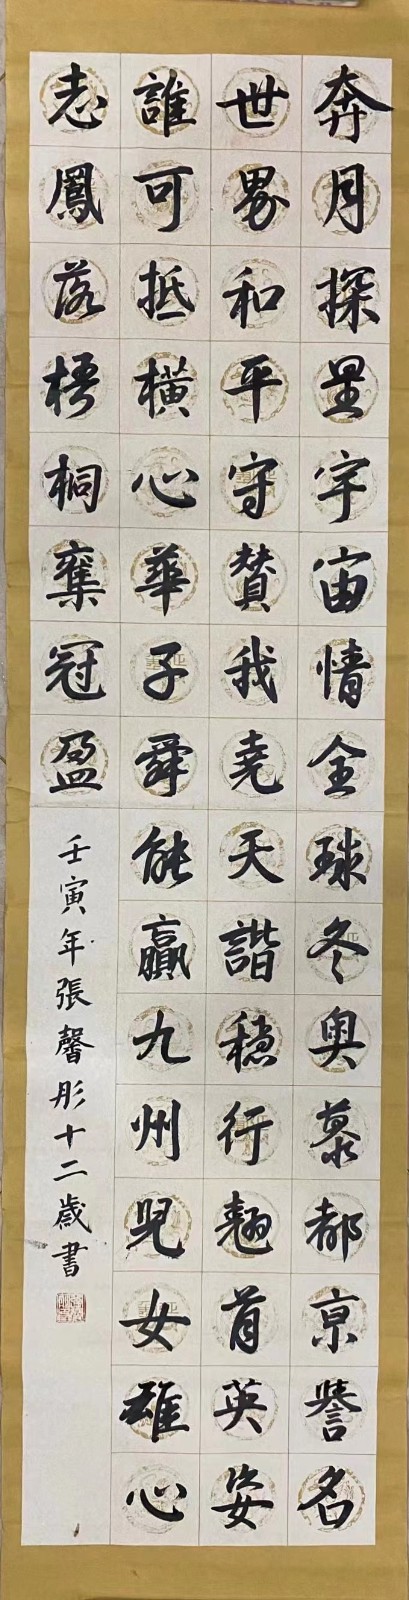 奔月探星宇宙情全球冬奥慕都京譽名
世界和平守賛我堯天諧穩行翹首英姿
誰可抵橫心華子舜能贏九州兒女雄心
志鳳落梧桐奪冠盈
壬寅年張馨彤十二歲書